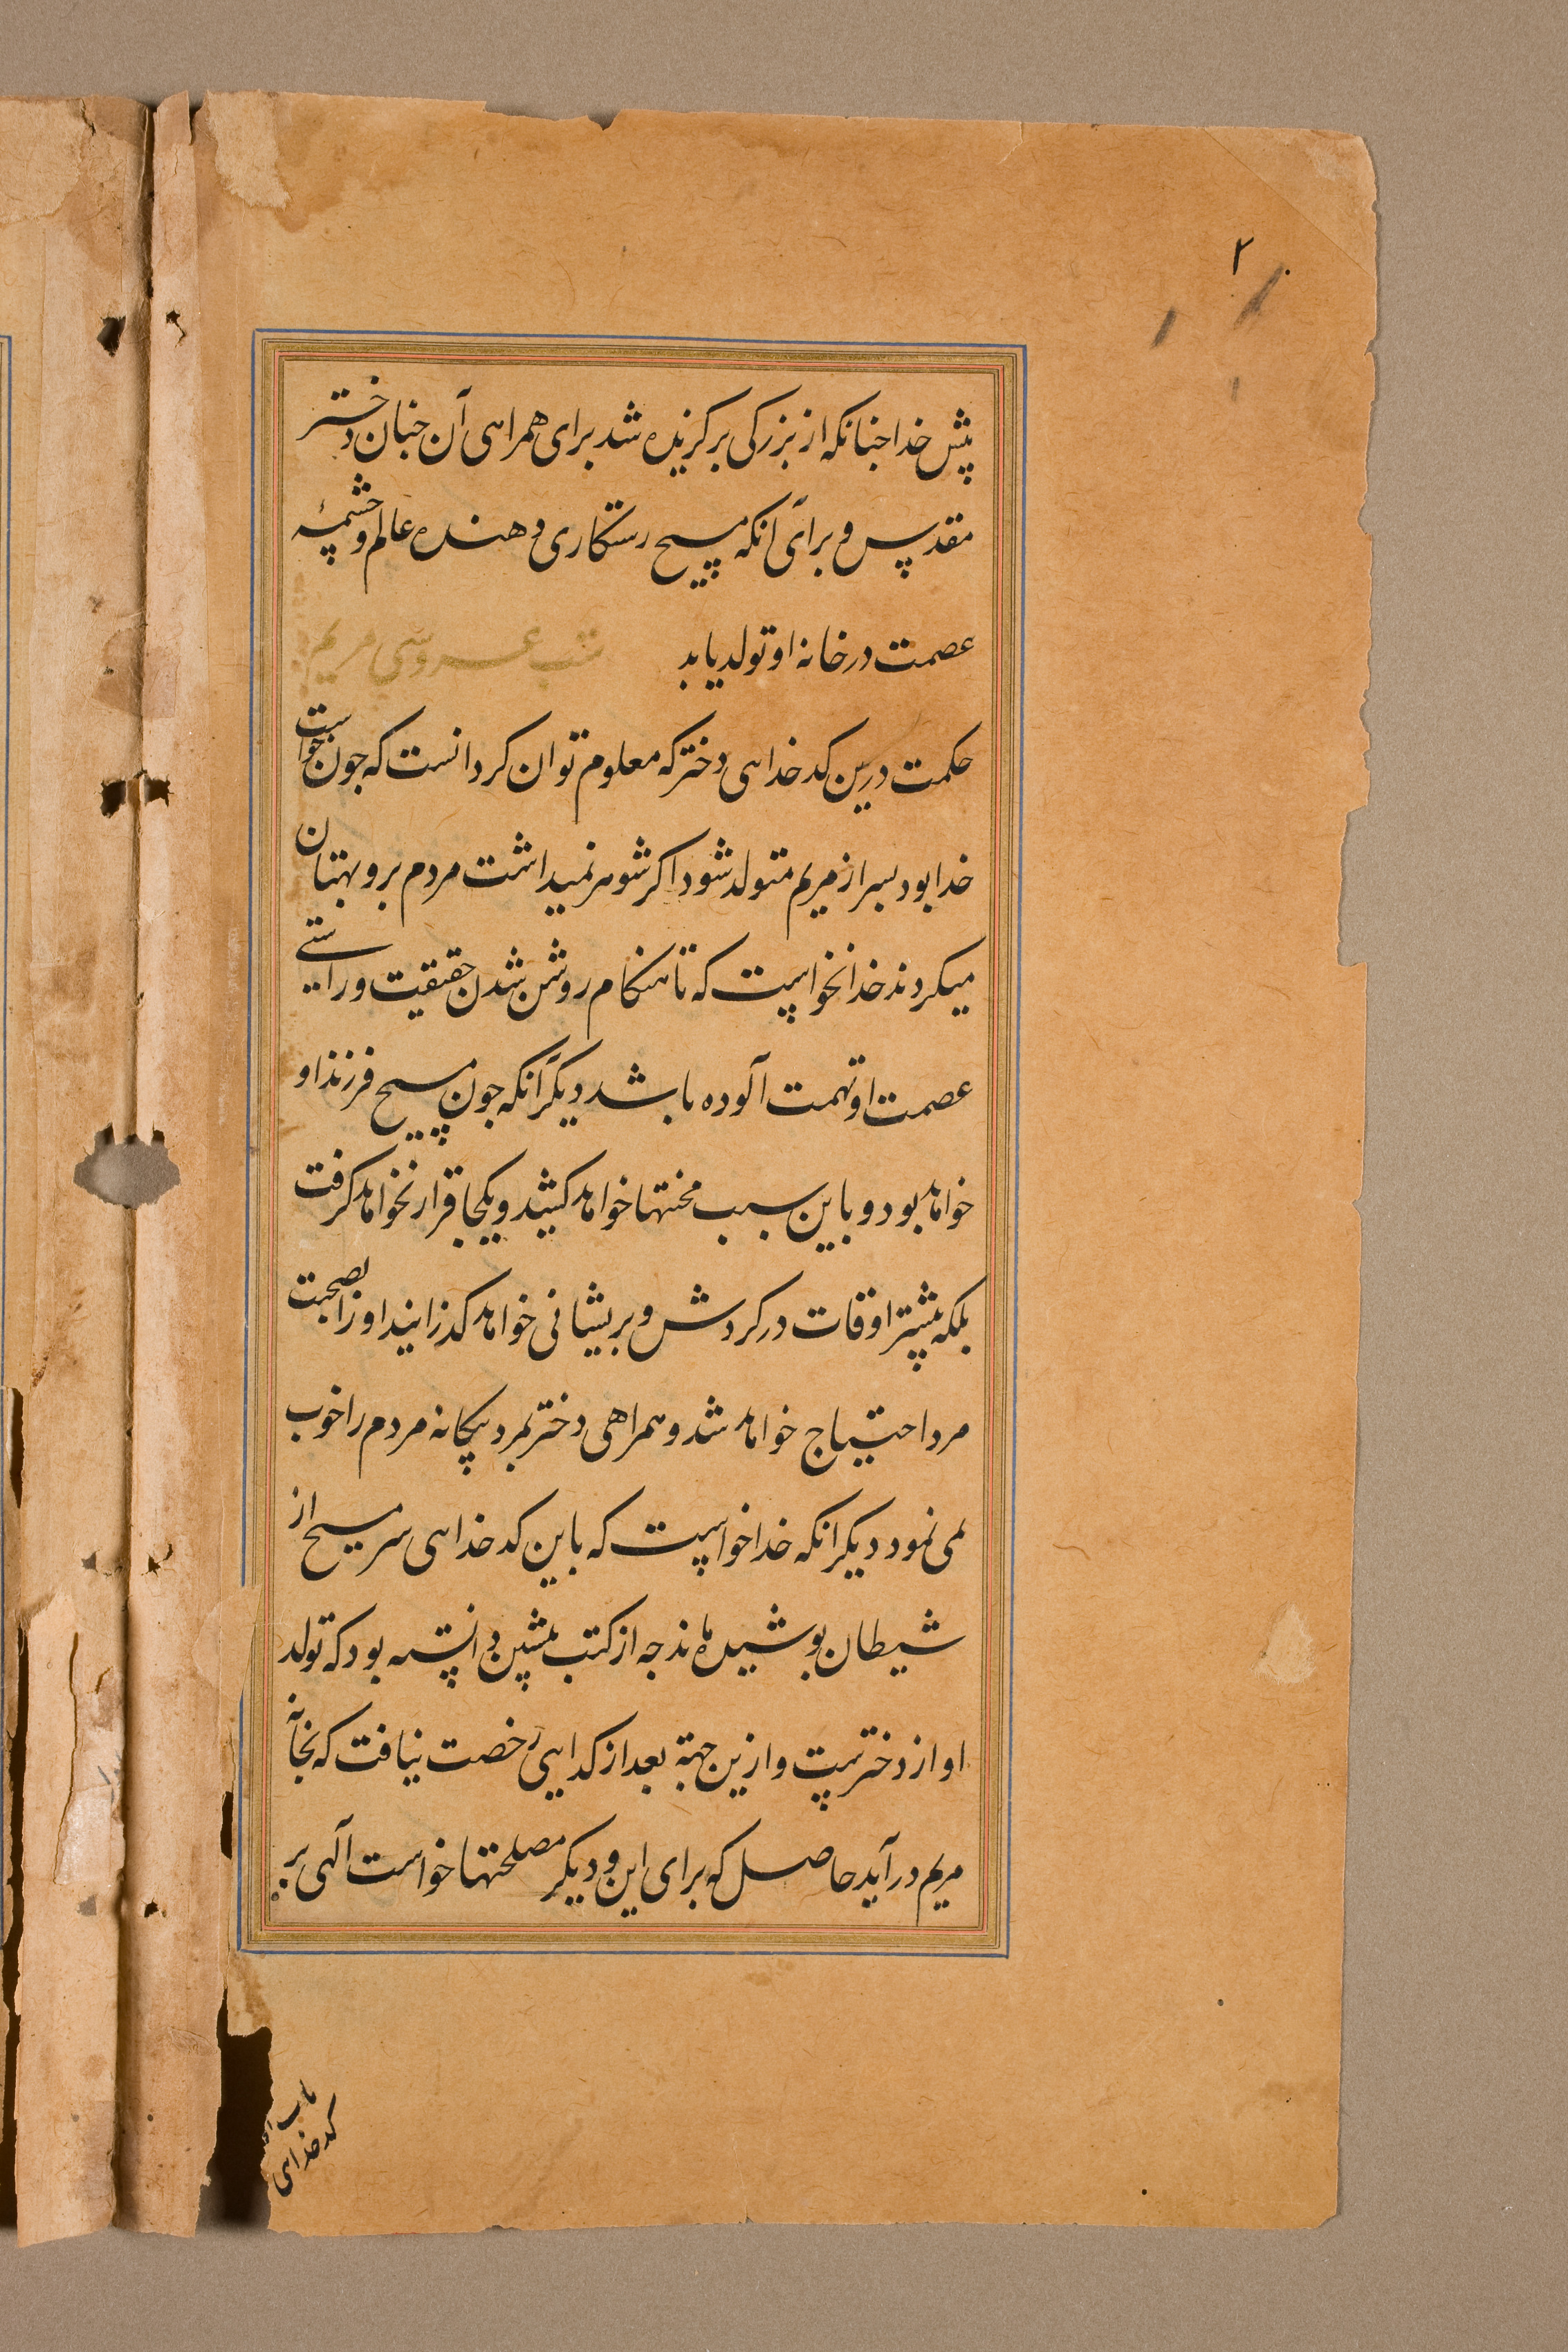 ۲
پیش خدا جنانکه از بزرکی برکزیده شد برای همراهی آن جنان دختر
مقدس و برای آنکه مسیح رستکاری دهنده عالم و چشمۀ
عصمت در خانه او تولد یابد
عروسی مریم
حکمت درین کدخداهی دختر که معلوم توان کرد انست که جون خواست
خدا بود بسر از مریم متولد شود اکر شوهر نمیداشت مردم برو بهتان
میکردند خدا نخواست که تا هنکام روشن شدن حقیقت و راستی
عصمت او تهمت آلوده باشد دیکر آنکه جون مسیح فرزند او
خواهد بود و باین سبب محنتها خواهد کشید و یکجا قرار نخواهد کرفت
بلکه بیشتر اوقات در کردش و بریشانی خواهد کذرانید او را بصحبت
مرد احتیاج خواهد شد و همراهی دختر بمرد بیکانه مردم را خوب
نمی نمود دیکر انکه خدا خواست که باین کدخداهی سر مسیح از
شیطان بوشیده ماند جه از کتب پیشین دانسته بود که تولد
او از دخترست و ازین جهة بعد از کدایی رخصت نیافت که بخانه
مریم درآید حاصل که برای این و دیکر مصلحتها خواست آلهی بر
باب
کدخداهی